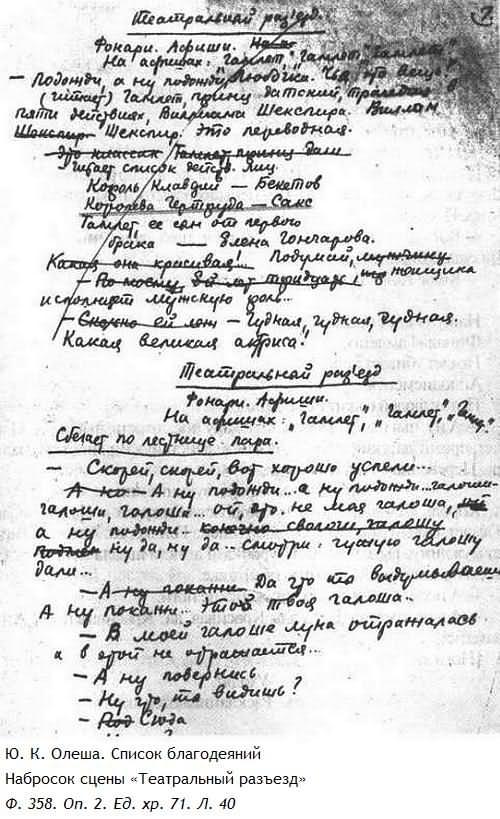 Театральный раз'езд.
Фонари. Афиши.
На афишах: "Гамлет," "Гамлет," "Гамлет"
— Подожди, а ну подожди,
(читает) Гамлет, принц датский, трагедия в
пяти действиях, Вилриама Шекспира. Виллам
Шекспир Шекспир. Это переводная.
Это классик Гамлет, принц дат
Читает список действ. лиц.
Король Клавдий — Бекетов
Королева Гертруда — Сакс
Гамлет, ее сын от первого
брака — Елена Гончарова.
Какая она красивая!.. Подумай, мужчину
— По моему, ей лет тридцать, женщина
исполняет мужскую роль...
— Сколько ей лет — Чудная, чудная, чудная.
Какая великая актриса.
Театральный раз'езд
Фонари. Афиши.
На афишах: "Гамлет," "Гамлет,"
Сбегает по лестнице пара.
— Скорей, скорей, вот хорошо успели...
А ну — А ну подожди... а ну подожди.. галоши-
галоши, галоша... ой, это не моя галоша,
а ну подожди.. галошу
ну да, ну да.. смотри: чужую галошу
дали...
— А ну покажи. Да что ты выдумываешь
А ну покажи.. Это твоя галоша..
— В моей галоше луна отражалась
а в этой не отражается...
— А ну повернись
— Ну что, ты видишь?
— Под Сюда
Ю. К. Олеша. Список благодеяний
Набросок сцены «Театральный разъезд»
Ф. 358. Оп. 2. Ед. хр. 71. Л. 40